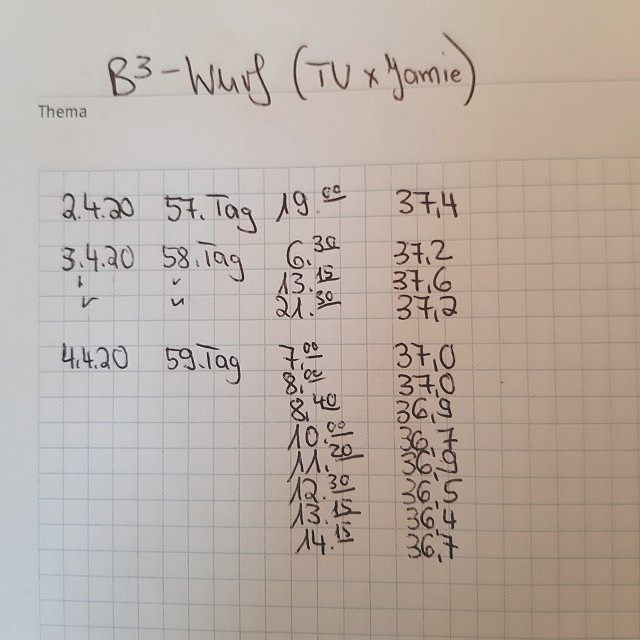 B³-Wurf (TV x Yamie)
Thema
2.4.20 57. Tag 19.00 37,4
3.4.20 58. Tag 6.30 37,2
13.15 37,6
21.30 37,2
4.4.20 59. Tag 7.00 37,0
8.00 37,0
8.40 36,9
10.00 36,7
11.20 36,9
12.30 36,5
13.15 36,4
14.15 36,7